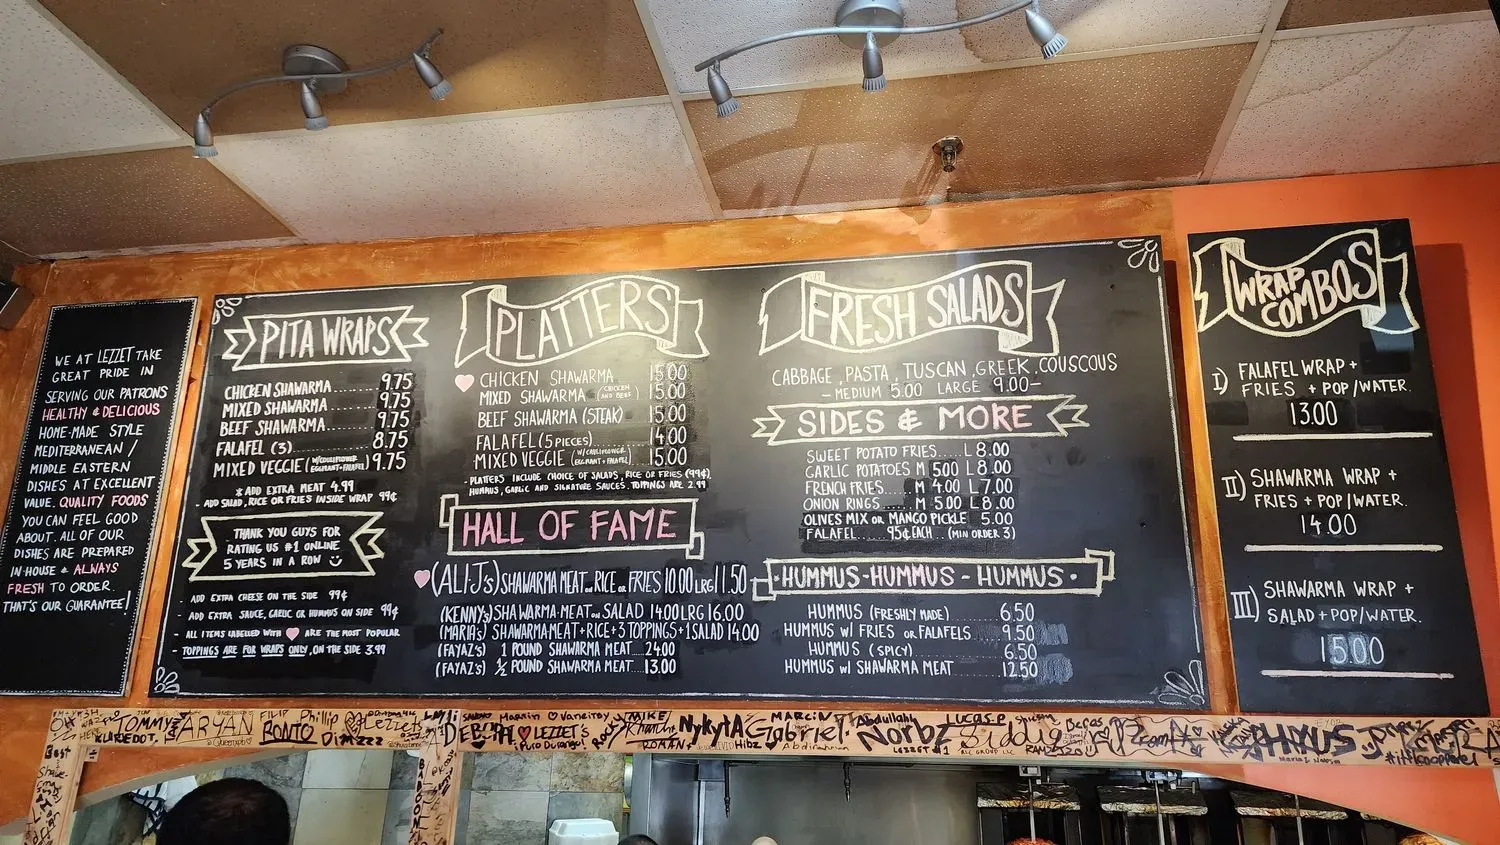 WE AT LEZZET TAKE
GREAT PRIDE IN
SERVING OUR PATRONS
HEALTHY & DELICIOUS
HOME-MADE STYLE
MEDITERRANEAN /
MIDDLE EASTERN
DISHES AT EXCELLENT
VALUE. QUALITY FOODS
YOU CAN FEEL GOOD
ABOUT. ALL OF OUR
DISHES ARE PREPARED
IN-HOUSE & ALWAYS
FRESH TO ORDER.
THAT'S OUR GUARANTEE!
PITA WRAPS
CHICKEN SHAWARMA........9.75
MIXED SHAWARMA........9.75
BEEF SHAWARMA........9.75
FALAFEL (3)........8.75
MIXED VEGGIE (W/CAULIFLOWER EGGPLANT+FALAFEL) 9.75
* ADD EXTRA MEAT 4.99
- ADD SALAD, RICE OR FRIES INSIDE WRAP 99¢
THANK YOU GUYS FOR
RATING US #1 ONLINE
5 YEARS IN A ROW
- ADD EXTRA CHEESE ON THE SIDE 99¢
- ADD EXTRA SAUCE, GARLIC OR HUMMUS ON SIDE 99¢
- ALL ITEMS LABELLED WITH ARE THE MOST POPULAR
- TOPPINGS ARE FOR WRAPS ONLY, ON THE SIDE 3.99
PLATTERS
CHICKEN SHAWARMA 15.00
MIXED SHAWARMA (CHICKEN AND BEEF) 15.00
BEEF SHAWARMA (STEAK) 15.00
FALAFEL (5 PIECES) 14.00
MIXED VEGGIE (W/CAULIFLOWER EGGPLANT+FALAFEL) 15.00
- PLATTERS INCLUDE CHOICE OF SALADS, RICE OR FRIES (99¢)
HUMMUS, GARLIC AND SIGNATURE SAUCES. TOPPINGS ARE 2.99
HALL OF FAME
(ALI-J's) SHAWARMA MEAT ON RICE OR FRIES 10.00 LRG 11.50
(KENNY's) SHAWARMA MEAT ON SALAD 14.00 LRG 16.00
(MARIA's) SHAWARMA MEAT + RICE + 3 TOPPINGS + 1 SALAD 14.00
(FAYAZ's) 1 POUND SHAWARMA MEAT....24.00
(FAYAZ's) ½ POUND SHAWARMA MEAT....13.00
FRESH SALADS
CABBAGE, PASTA, TUSCAN, GREEK, COUSCOUS
- MEDIUM 5.00 LARGE 9.00-
SIDES & MORE
SWEET POTATO FRIES....L 8.00
GARLIC POTATOES M 5.00 L 8.00
FRENCH FRIES......M 4.00 L 7.00
ONION RINGS....M 5.00 L 8.00
OLIVES MIX OR MANGO PICKLE 5.00
FALAFEL......95¢ EACH...(MIN ORDER 3)
HUMMUS-HUMMUS-HUMMUS
HUMMUS (FRESHLY MADE) 6.50
HUMMUS W/ FRIES OR FALAFELS 9.50
HUMMUS (SPICY) 6.50
HUMMUS W/ SHAWARMA MEAT 12.50
WRAP
COMBOS
I) FALAFEL WRAP +
FRIES + POP/WATER.
13.00
II) SHAWARMA WRAP +
FRIES + POP/WATER.
14.00
III) SHAWARMA WRAP +
SALAD + POP/WATER.
15.00
TOMMY ARYAN FILIP Phillip Lezzet
BONTO Dimzzz
Marcin Vaneitoy MIKE NykytA Gabriel MARCIN Abdullahi Norbz Lucas P
LEZZET's
ROMAN Hibz Abdirahman LEZZET #1